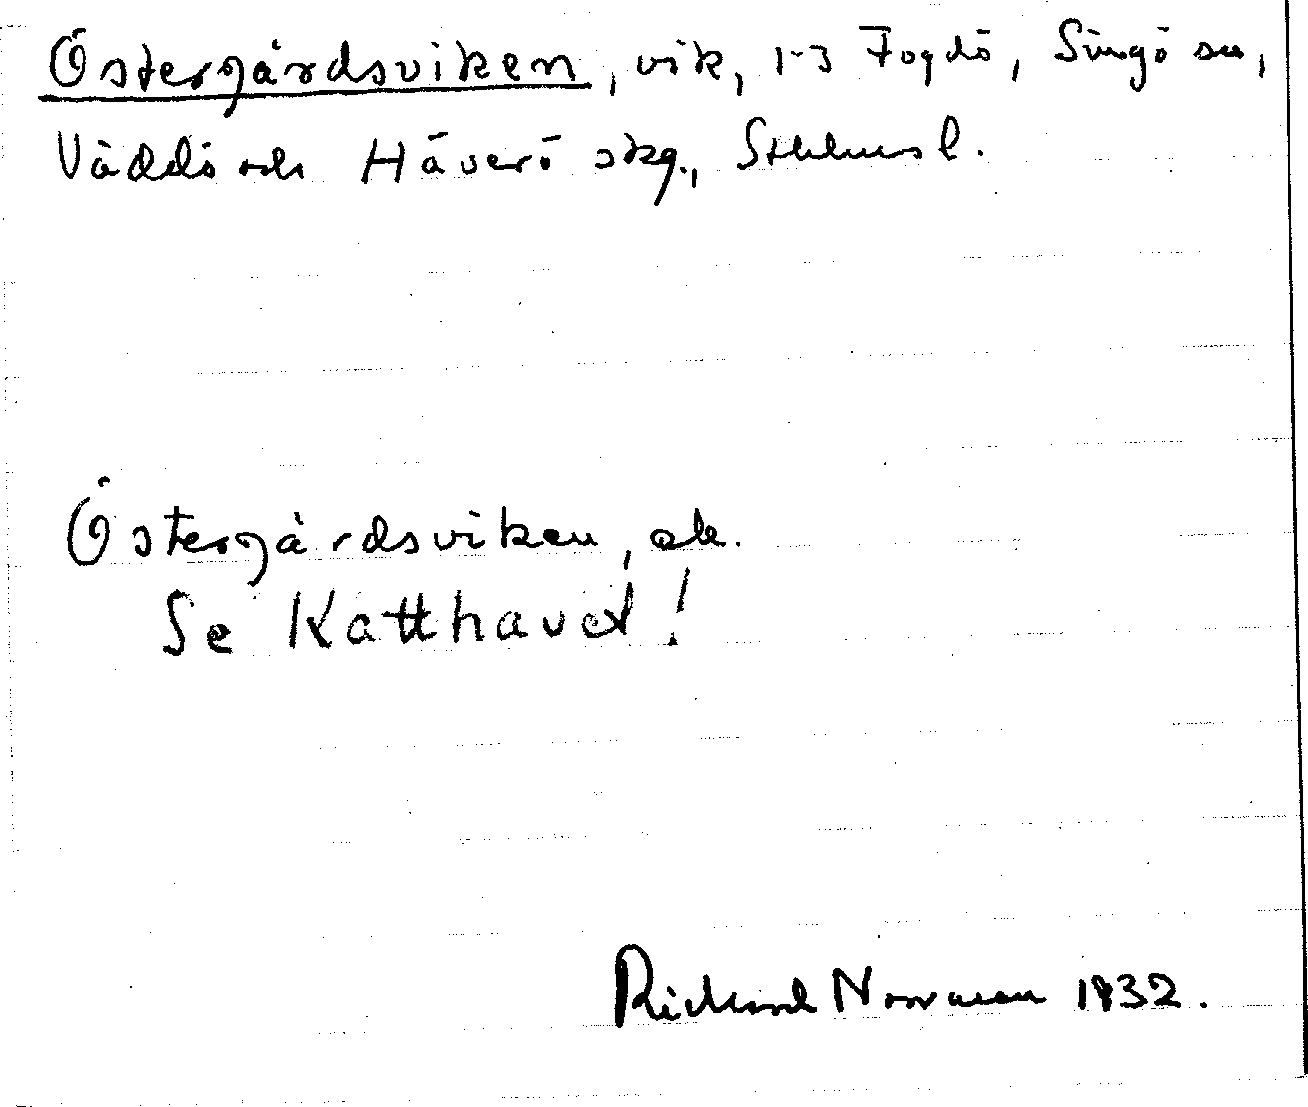 Östergårdsviken, vik, 1-3 Fogdö, Singö sn,
Väddö och Häverö skg., Sthlms l.
Östergårdsviken, ek.
Se Katthavet!
Rickard Norrman 1932.